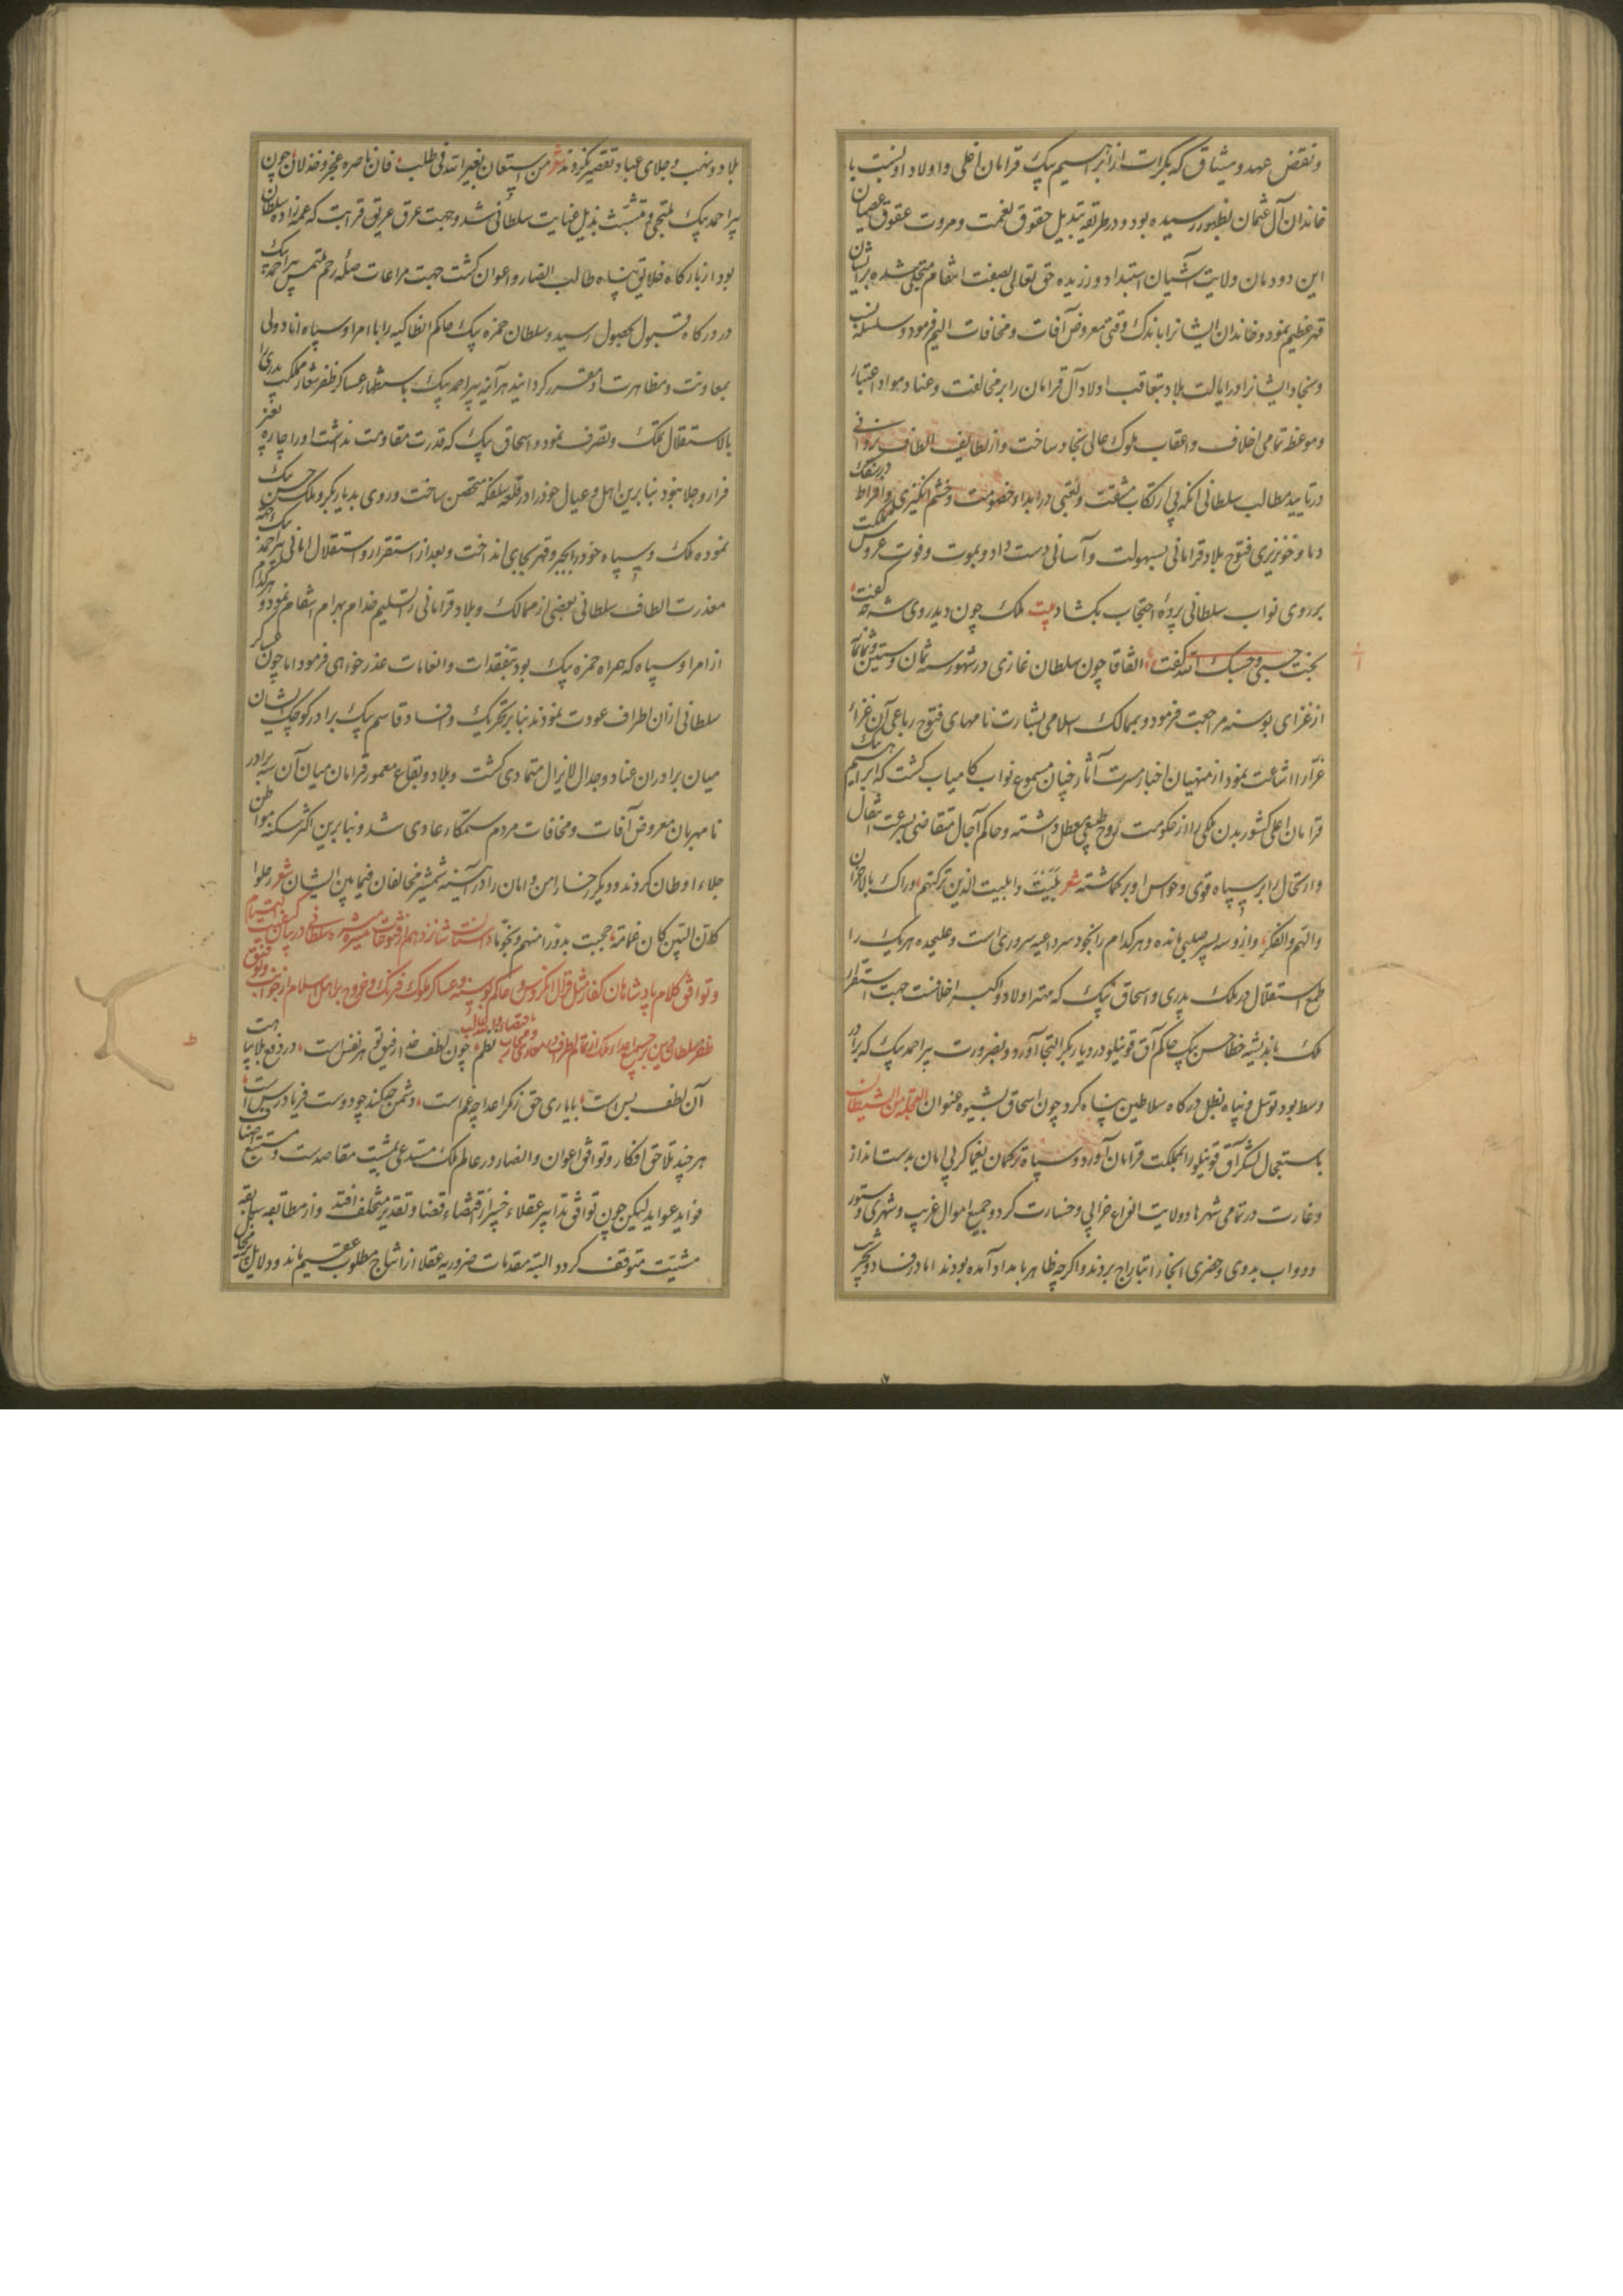 و نقض عهد و میثاق که بکرات از ابراهیم بیک قرامان اغلی و اولاد او نسبت با
خاندان آل عثمان بظهور رسیده بود و در طریقه تبدیل حقوق نعمت و مروت عقوق عصیان
این دودمان ولایت آشیان استبداد ورزیده حق تعالی بصفت انتقام متجلی شده بر ایشان
قهر عظیم نمود و خاندان ایشانرا باندک وقتی معروض آفات و مخافات الیم فرمود و سلسله نسب
و نجاد ایشانرا در ایالت بلاد بتعاقب اولاد آل قرامان را بر مخالفت و عناد مواد اعتبار
و موعظه تمامی اخلاف و اعقاب ملوک عالی نجاد ساخت و از لطایف الطاف یزدانی
در تایید مطالب سلطانی آنکه بی ارتکاب مشقت و تعبی در ابداء خصومت و خشم انگیزی و افراط در سفک
دما و خونریزی فتوح بلاد قرامانی بسهولت و آسانی دست داد و بموت و فوت عروس مملکت
بر روی نواب سلطانی پرده احتجاب بکشاد بیت ملک چون دید روی شه گفت
بخت حسبی و حسبک الله گفت اتفاقا چون سلطان غازی در شهور سنه ثمان و ستین و ثمانمائه
از غزای بوسنه مراجعت فرمود و بممالک اسلامی بشارت نامهای فتوح رباعی آن غزاء
غرّا را اشاعت نمود از منهیان اخبار مسرت آثار چنان مسموع نواب کامیاب کشت که ابراهیم بیک
قرامان اغلی کشور بدن ملکی را از حکومت روح طبیعی معطل داشته و حاکم آجال متقاضی بسرعت انتقال
و ارتحال را بر سپاه قوی و حواس او بر کماشته شعر بلیتَ و ابلیت الذین ترکتهم وراک بالاحزان
و الهم و الفکر و ازو سه پسر صلبی مانده و هر کدام را بخود سر داعیه سروری است و علیحده هر یک را
طمع استقلال در ملک پدری و اسحاق بیک که مهتر اولاد و اکبر اخلافست جهت استقرار
ملک باندیشه خطا حسن بیک حاکم آق قوینیلو در دیاربکر التجا آورد و بضرورت پیر احمد بیک که برادر
وسط بود توسل و پناه بظل درکاه سلاطین پناه کرد چون اسحاق بشیوه عنوان العجلة من الشیطان
باستعجال لشکر آق قوینیلو را بمملکت قرامان آورد و سپاه ترکمان یغماکر بی امان بدست انداز
و غارت در تمامی شهرها و ولایت انواع خرابی و خسارت کرد و جمیع اموال غریب و شهری و ستور
و دواب بدوی و حضری انجا را بتاراج بردند و اکرچه بظاهر بامداد آمده بودند اما در فساد و تخریب
بلاد و نهب و جلای عباد تقصیر نکردند شعر من استعان بغیر الله فی طلب فان ناصره عجز و خذلان چون
پیر احمد بیک ملتجی و متشبّث بذیل عنایت سلطانی شد و جهت عرق عریق قرابت که عمه زاده سلطان
بود از بارکاه خلایق پناه طالب انصار و اعوان کشت جهت مراعات صلهٔ رحم ملتمس پیر احمد بیک
در درکاه قبول بحصول رسید و سلطان حمزه بیک حاکم انطاکیه را با امرا و سپاه انادولی
بمعاونت و مظاهرت او مقرر کردانید هر آینه پیر احمد بیک باستظهار عساکر ظفر شعار مملکت پدری را
بالاستقلال تملک و تصرف نمود و اسحاق بیک که قدرت مقاومت نداشت او را چاره بغیر
فرار و جلا نبود بنابرین اهل و عیال خود را در قلعه سلفکه متحصن ساخت و روی بدیاربکر و ملک حسن بیک
نموده ملک و سپاه خود را بجبر و قهر بجای انداخت و بعد از استقرار و استقلال امانی پیر احمد بیک جهت
معذرت الطاف سلطانی بعضی از ممالک و بلاد قرامانی را تسلیم خدام بهرام انتقام نمود و هر کدام
از امرا و سپاه که همراه حمزه بیک بود بتفقدات و انعامات عذر خواهی فرمود اما چون عساکر
سلطانی از ان اطراف عودت نمودند بنا بر تحریک و افساد قاسم بیک برادر کوچک ایشان
میان برادران عناد و جدال لایزال متمادی کشت و بلاد و بقاع معمور قرامان میان آن سه برادر
نامهربان معروض آفات و مخافات مردم ستمکار عادی شد و بنابرین اکثر سکنه موطن
جلاء اوطان کردند و دیکر رخسار امن و امان را در آینه شمشیر مخالفان فیما بین ایشان شعر رحلوا
کان البین کان غمامة حجبت بدورا منهم و نجوما داستان شانزدهم از فتوحات میسره سلطانی در بیان کیفیت اهتمام
و توافق کلام پادشاهان کفار مثل قرال انکروس و حاکم بوسنه و عساکر ملوک فرنک و خروج بر اهل اسلام از جوانب و وقوع فتوح
ظفر سلطان دین بر جمیع اعداء ملک از تمام اطراف نظم چون لطف خدا رفیق تو هر نفس است در دفع بلا پناهت
آن لطف بس است با یاری حق ز مکر اعدا چه غم است دشمن چکند چو دوست فریادرس است
هر چند تلاحق افکار و توافق اعوان و انصار در عالم ملک مستدعی تمشیت مقاصدست و مستتبع اصناف
فواید عواید لیکن چون توافق تدابیر عقلاء خبیر از اقتضاء قضا و تقدیر متخلف افتد و از مطابقه سابقه
مشیّت متوقف کردد البته مقدمات ضروریه عقلا از انتاج مطلوب عقیم ماند و دلایل